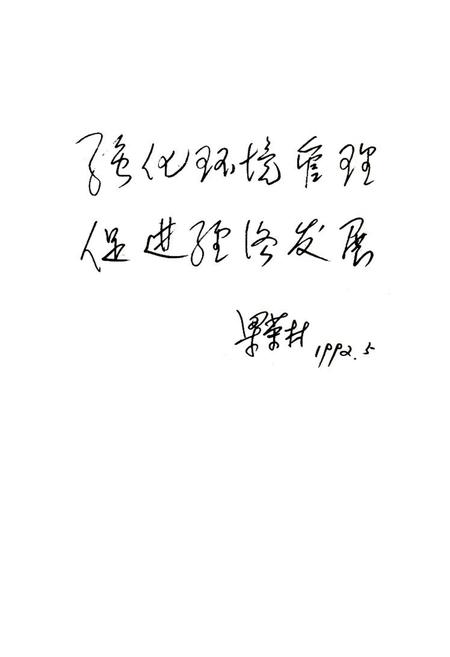 强化环境管理
促进经济发展
梁荣材 1992.5